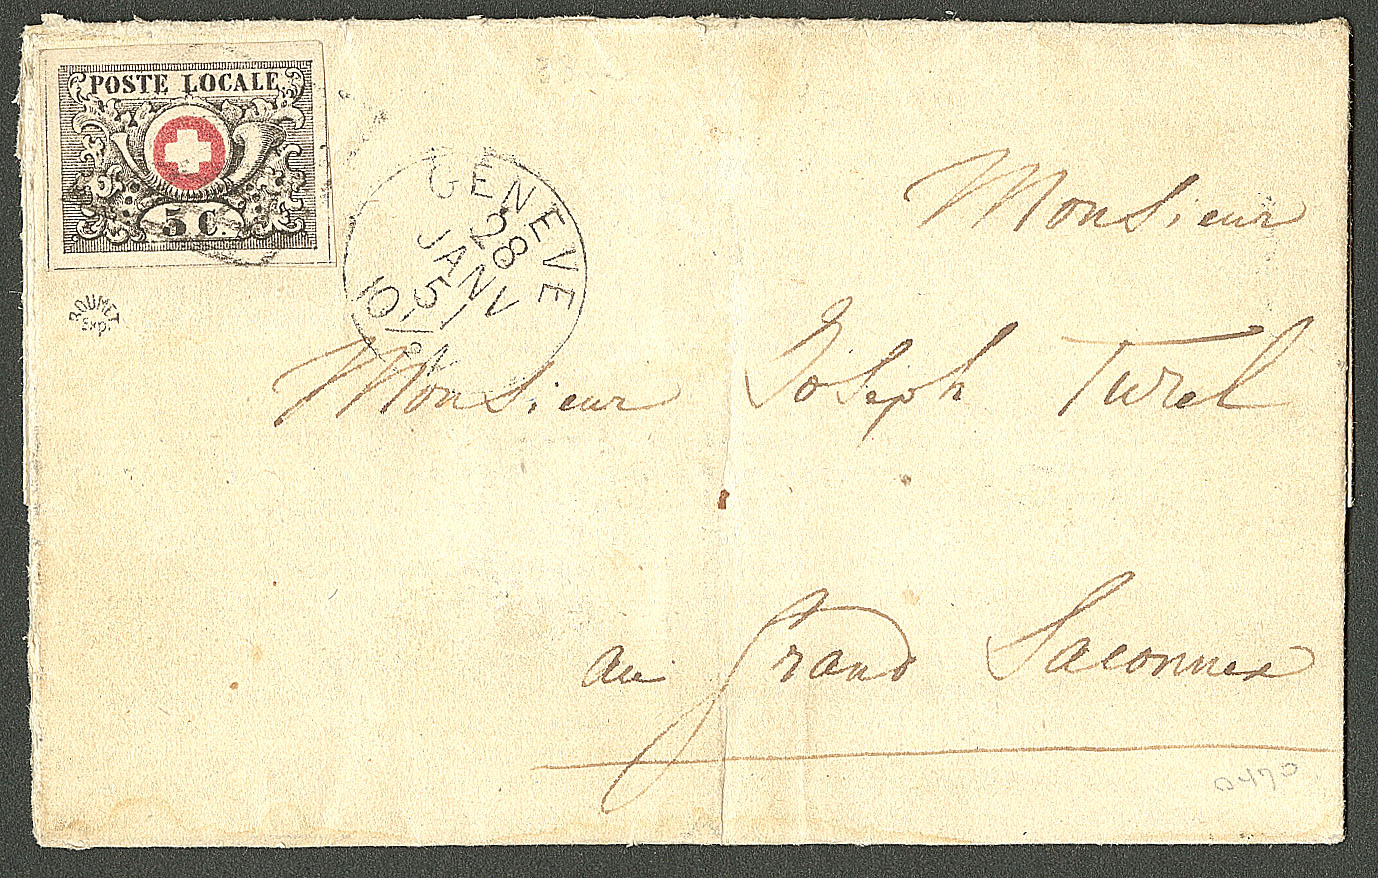 POSTE LOCALE
5 C.
GENEVE
28
JANV
51
10½M
ROUMET
EXP.
Monsieur
Monsieur Joseph Turel
au Grand Saconnex
0470